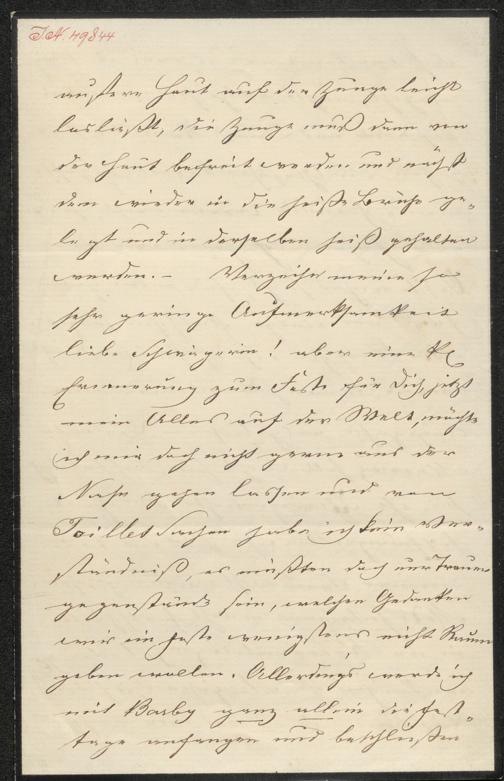 I.N. 49844
äußere Haut auf der Zunge leicht
losläßt, die Zunge muß dann von
der Haut befreit werden und nächst
dem wieder in die heiße Brühe ge-
legt und in derselben heiß gehalten
werden. – Verzeihe meine so
sehr geringe Aufmerksamkeit
liebe Schwägerin! aber eine kl
Erinnerung zum Feste für Dich, jetzt
mein Alles auf der Welt, möchte
ich mir doch nicht gerne aus der
Nase gehen lassen und von
Toillet Sachen habe ich kein Ver-
ständniß, es müßten doch nur Trauer
gegenstände sein, welchen Gedanken
wir ein Feste wenigstens nicht Raum
geben wollen. Allerdings werde ich
mit Barby ganz allein die Fest-
tage anfangen und beschließen